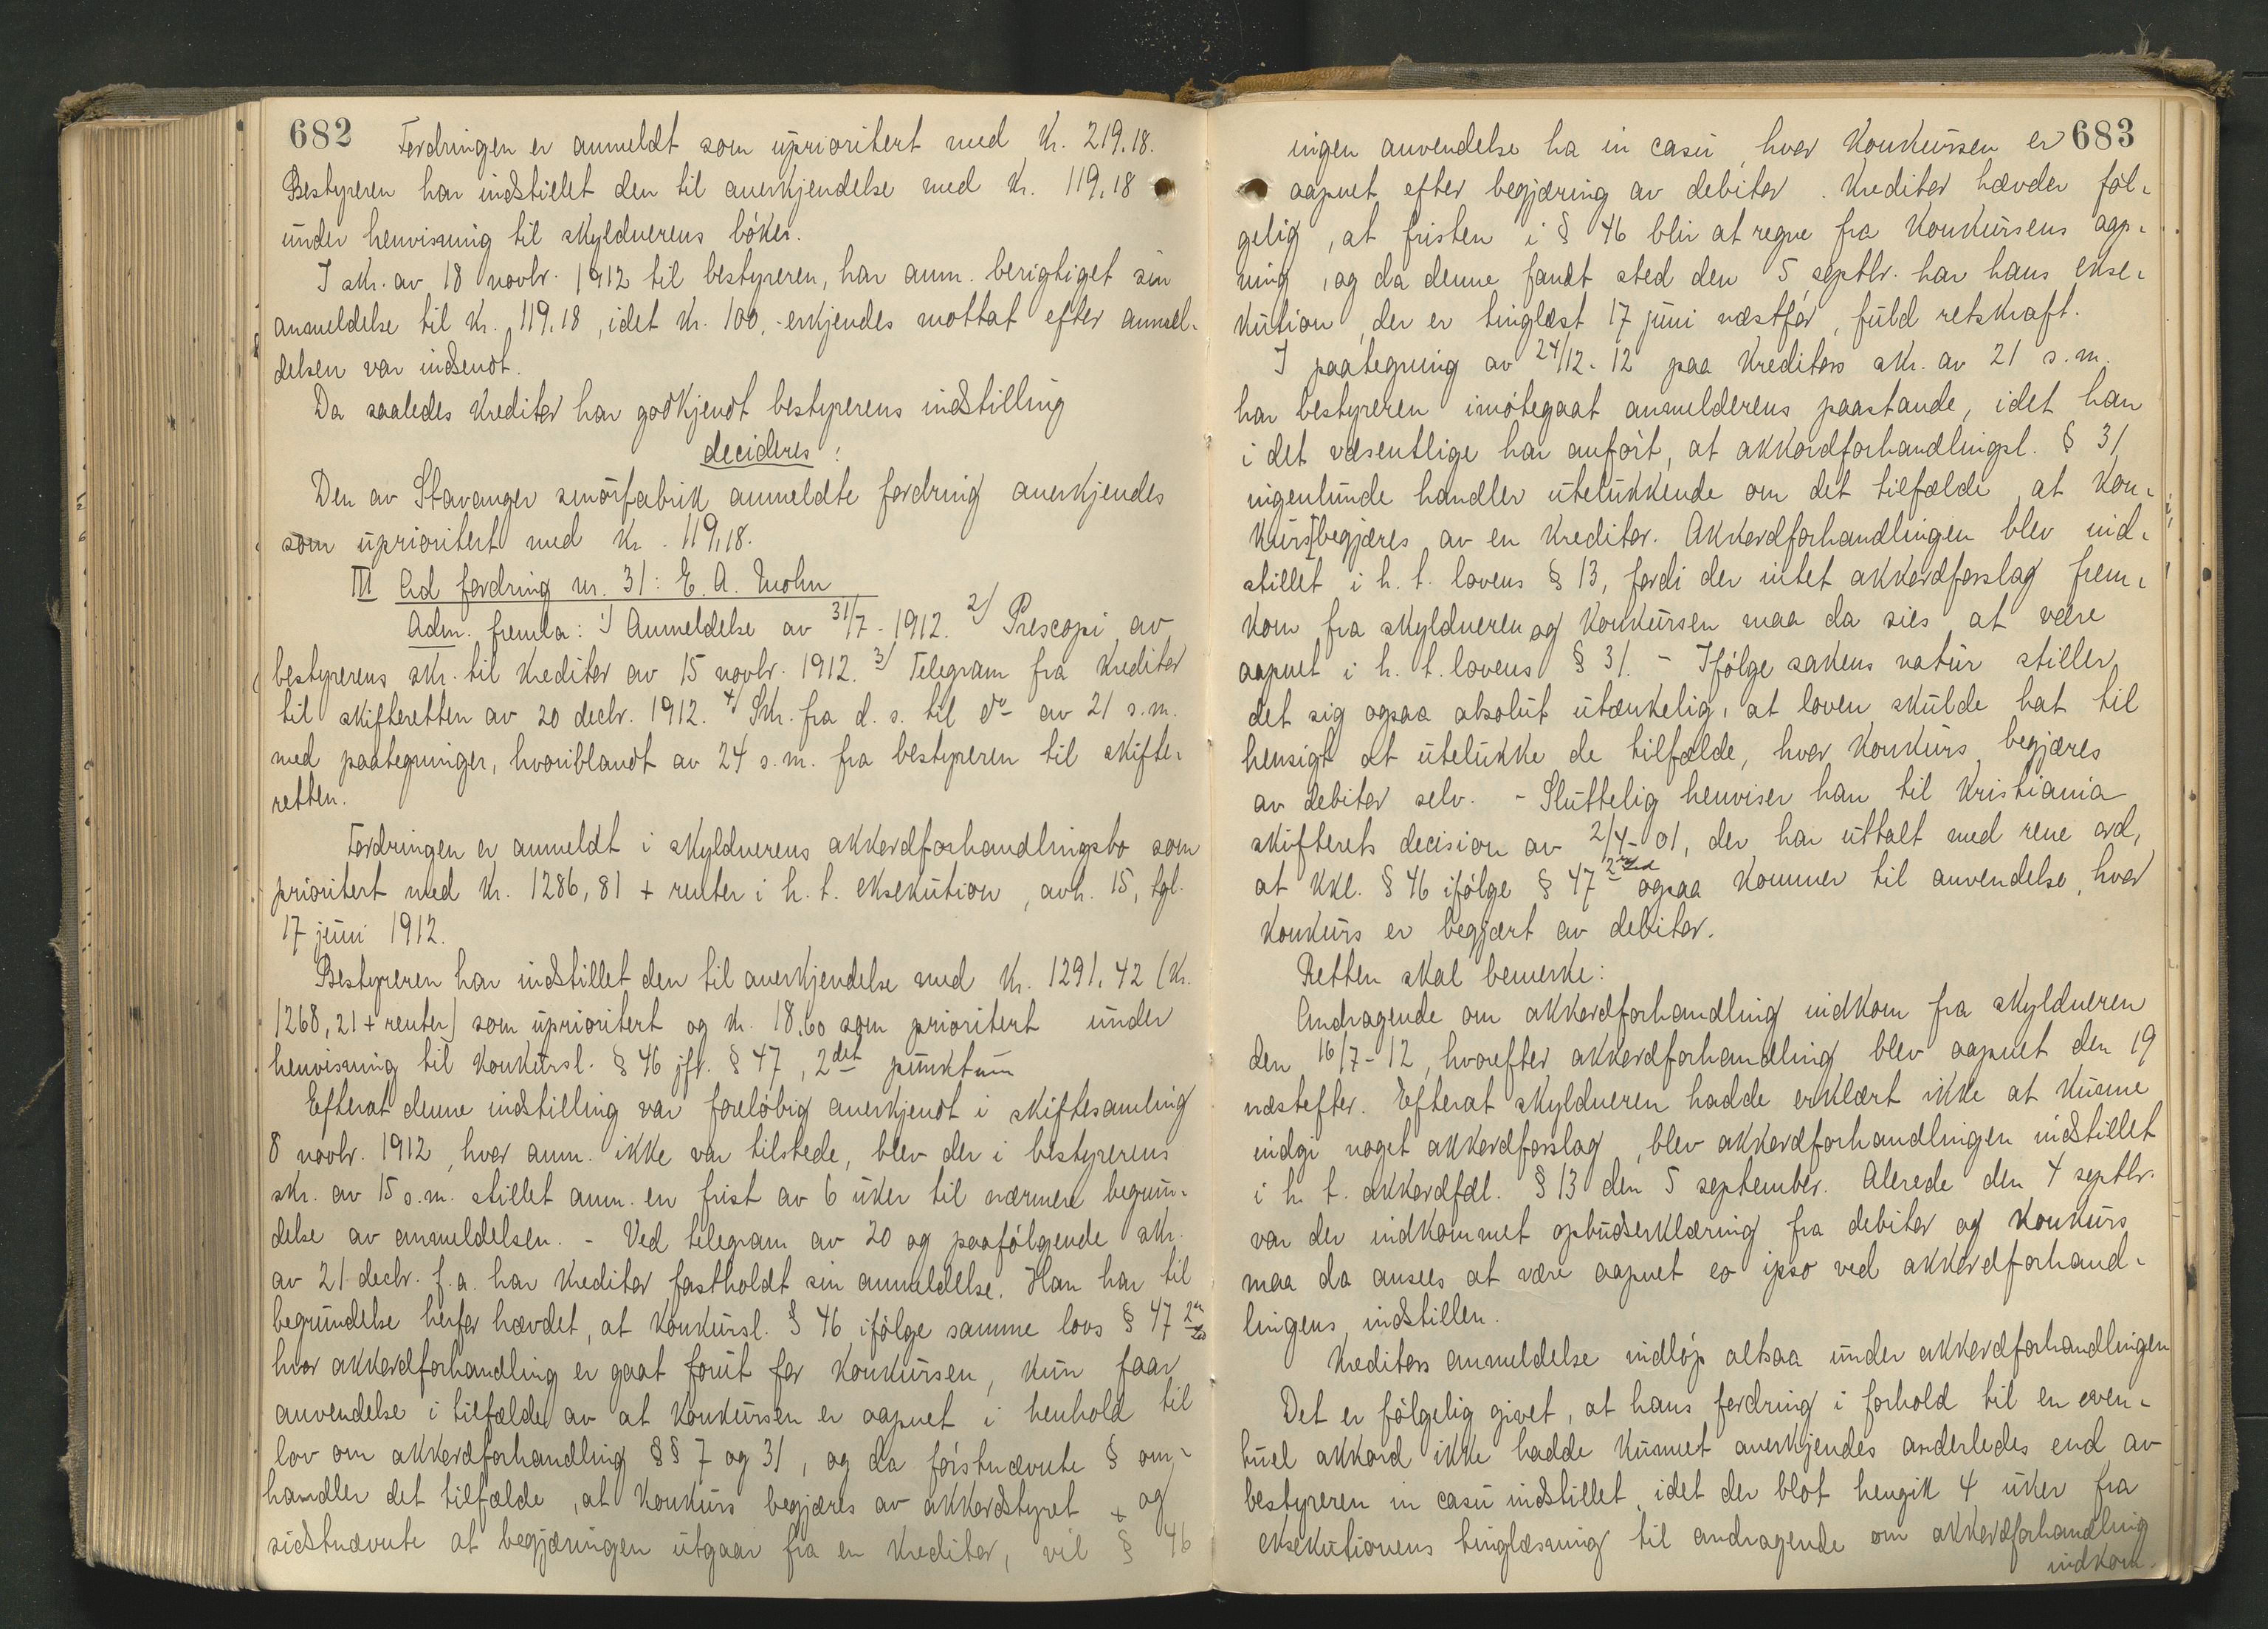 682
Fordringen er anmeldt som uprioritert med kr. 219.18.
Bestyreren har indstillet den til anerkjendelse med kr. 119,18
under henvisning til skyldnerens bøker.
I skr. av 18 novbr. 1912 til bestyreren, har anm. berigtiget sin
anmeldelse til kr. 119.18, idet kr. 100,- erkjendes mottat efter anmel-
delsen var indsendt.
Da saaledes kreditor har godkjendt bestyrerens indstilling
decideres:
Den av Stavanger smørfabrik anmeldte fordring anerkjendes
som uprioritert med kr. 119,18.
III Ad fordring nr. 31: E. A. Mohn
Adm. fremla: 1) Anmeldelse av 31/7-1912. 2) Prescopi av
bestyrerens skr. til kreditor av 15 novbr. 1912. 3) Telegram fra kreditor
til skifteretten av 20 decbr. 1912. 4) Skr. fra d. s. til do av 21 s.m.
med paategninger, hvoriblandt av 24 s.m. fra bestyreren til skifte-
retten.
Fordringen er anmeldt i skyldnerens akkordforhandlingsbo som
prioritert med kr. 1286,81 + renter i h. t. eksekution, avh. 15, tgl.
17 juni 1912.
Bestyreren har indstillet den til anerkjendelse med kr. 1291,42 (kr.
1268,21 + renter) som uprioritert og kr. 18,60 som prioritert under
henvisning til konkursl. § 46 jfr. § 47, 2det punktum
Efterat denne indstilling var foreløbig anerkjendt i skiftesamling
8 novbr. 1912, hvor anm. ikke var tilstede, blev der i bestyrerens
skr. av 15 s.m. stillet anm. en frist av 6 uker til nærmere begrun-
delse av anmeldelsen. - Ved telegram av 20 og paafølgende skr.
av 21 decbr. f.a. har kreditor fastholdt sin anmeldelse. Han har til
begrundelse herfor hævdet, at konkursl. § 46 ifølge samme lovs § 47 2
hvor akkordforhandling er gaat forut for konkursen, kun faar
anvendelse i tilfælde av at konkursen er aapnet i henhold til
lov om akkordforhandling §§ 7 og 31, og da førstnævnte § om-
handler det tilfælde, at konkurs begjæres av akkordstyret + og
sidstnævnte at begjæringen utgaar fra en kreditor, vil § 46
683
ingen anvendelse ha in casu, hvor konkursen er
aapnet efter begjæring av debitor. Kreditor hævder føl-
gelig, at fristen i § 46 blir at regne fra konkursens aap-
ning, og da denne fandt sted den 5 septbr. har hans ekse-
kution, der er tinglæst 17 juni næstfør, fuld retskraft.
I paategning av 24/12-12 paa kreditors skr. av 21 s.m.
har bestyreren imøtegaat anmelderens paastande, idet han
i det væsentlige har anført, at akkordforhandlingsl. § 31
ingenlunde handler utelukkende om det tilfælde, at kon-
kurs begjæres av en kreditor. Akkordforhandlingen blev ind-
stillet i h. t. lovens § 13, fordi der intet akkordforslag frem-
kom fra skyldneren og konkursen maa da sies at være
aapnet i h. t. lovens § 31. - Ifølge sakens natur stiller
det sig ogsaa absolut utænkelig, at loven skulde hat til
hensigt at utelukke de tilfælde, hvor konkurs begjæres
av debitor selv. - Sluttelig henviser han til Kristiania
skifterets decision av 2/4-01, der har uttalt med rene ord,
at kkl. § 46 ifølge § 47 2 ogsaa kommer til anvendelse, hvor
konkurs er begjært av debitor.
Retten skal bemerke:
Andragende om akkordforhandling indkom fra skyldneren
den 16/7-12, hvorefter akkordforhandling blev aapnet den 19
næstefter. Efterat skyldneren hadde erklært ikke at kunne
indgi noget akkordforslag, blev akkordforhandlingen indstillet
i h. t. akkordfdl. § 13 den 5 september. Alerede den 4 septbr.
var der indkommet opbudserklæring fra debitor og konkurs
maa da ansees at være aapnet eo ipso ved akkordforhand-
lingens indstillen.
Kreditors anmeldelse indløp altsaa under akkordforhandlingen
Det er følgelig givet, at hans fordring i forhold til en even-
tuel akkord ikke hadde kunnet anerkjendes anderledes end av
bestyreren in casu indstillet, idet der blot hengik 4 uker fra
eksekutionens tinglæsning til andragende om akkordforhandling
indkom.